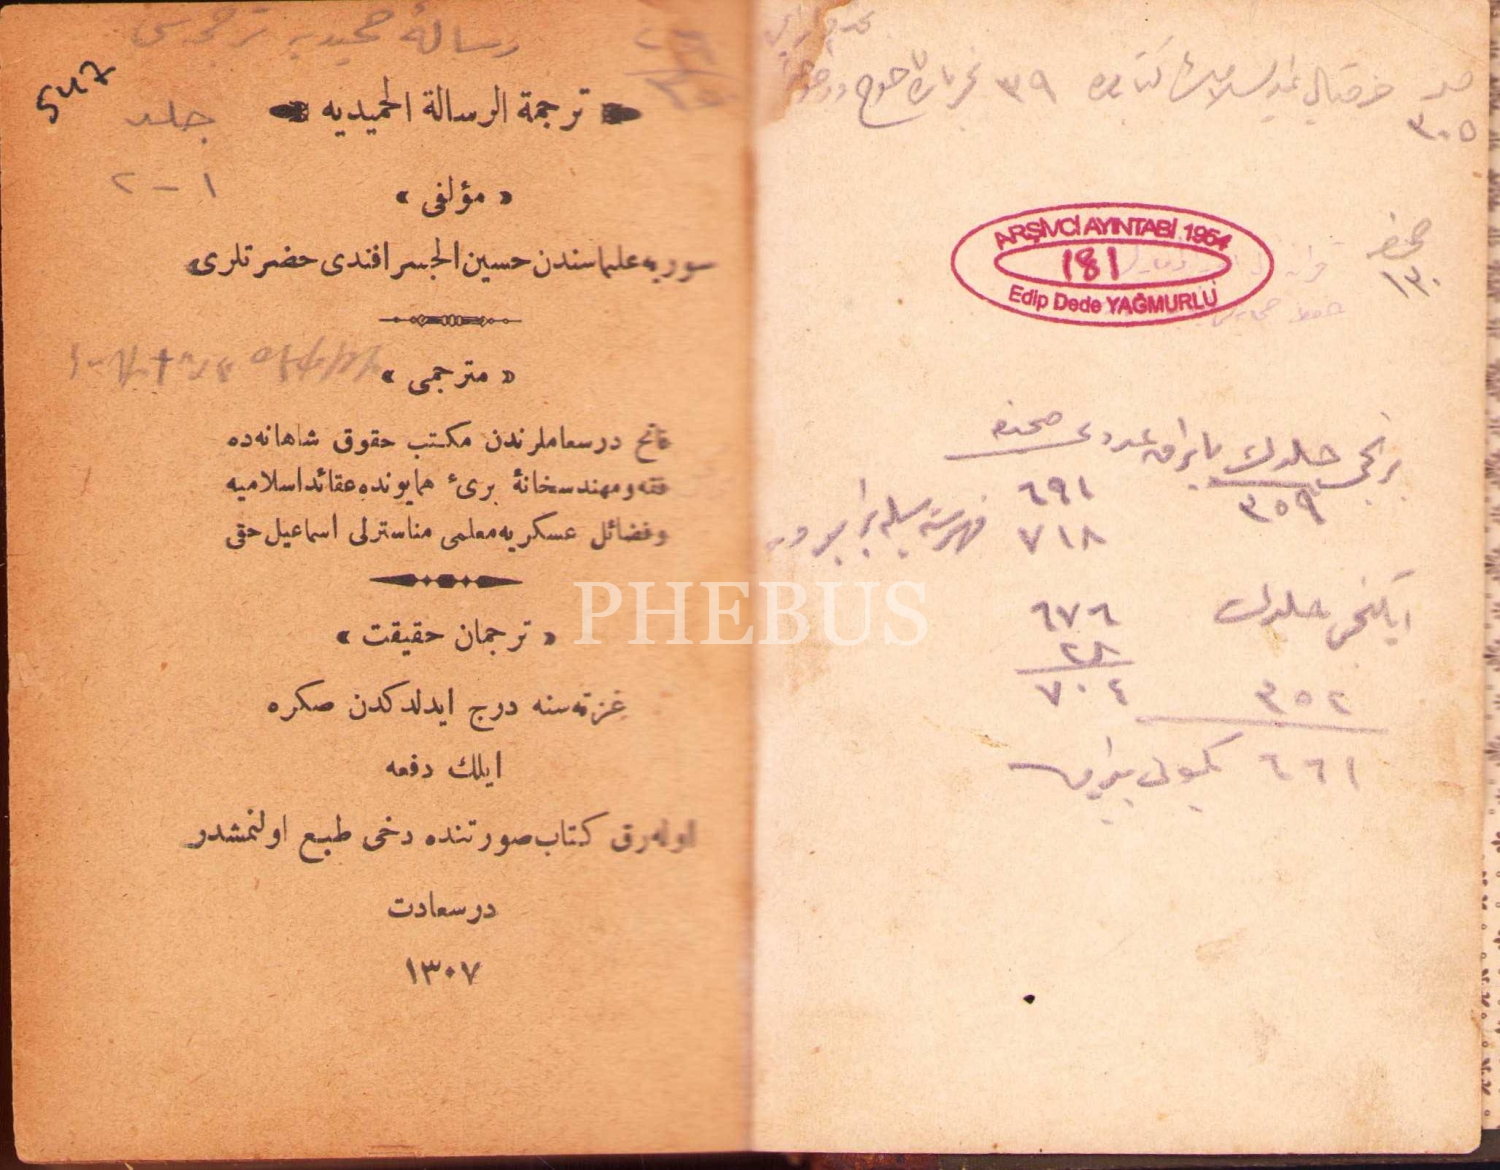 رسالهٔ حمیدیه ترجمه‌سی
547
جلد
١ – ٢
ترجمة الرسالة الحمیدیه
« مؤلفی »
سوریه علماسندن حسین الجسر افندی حضرتلری
« مترجمی »
فاتح درسعاملرندن مکتب حقوق شاهانه‌ده
فقه و مهندسخانهٔ بریٔ همایونده عقائد اسلامیه
وفضائل عسکریه معلمی مناسترلی اسماعیل حقی
« ترجمان حقیقت »
غزته‌سنه درج ایدلدکدن صکره
ایلك دفعه
اوله‌رق کتاب صورتنده دخی طبع اولنمشدر
درسعادت
١٣٠٧
٣٠٥
٣٩
ARŞİVCİ AYINTABİ 1954
181
Edip Dede YAĞMURLU
١٣٠
برنجی جلدك یاپراق عددی صحیفه
٣٥٩
٦٩١
٧١٨
ایکنجی جلدك
٦٧٦
٢٨
٧٠٤
٣٥٢
٦٦١
PHEBUS